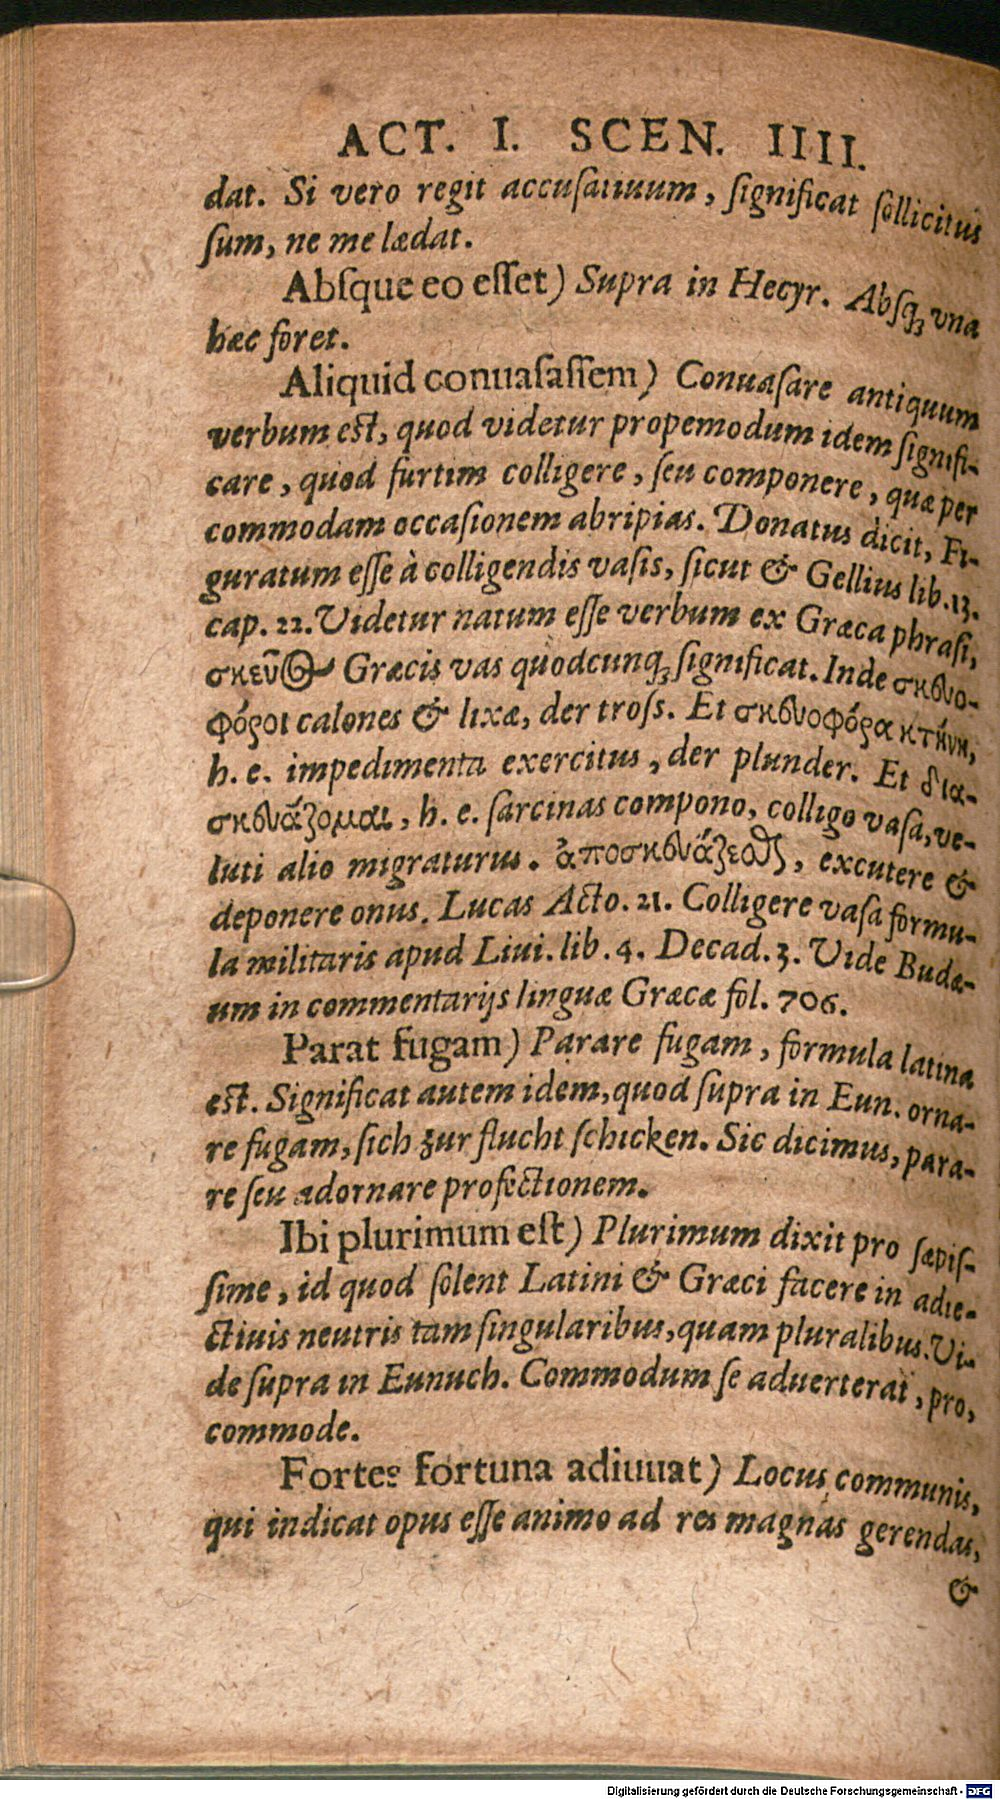 ACT. I. SCEN. IIII.
dat. Si vero regit accusatiuum, significat sollicitus
sum, ne me lædat.
Absque eo esset) Supra in Hecyr. Absq; vna
hæc foret.
Aliquid conuasassem) Conuasare antiquum
verbum est, quod videtur propemodum idem signifi-
care, quod furtim colligere, seu componere, quæ per
commodam occasionem abripias. Donatus dicit, Fi-
guratum esse à colligendis vasis, sicut & Gellius lib. 13.
cap. 22. Videtur natum esse verbum ex Græca phrasi,
σκεῦος Græcis vas quodcunq; significat. Inde σκευο-
φόροι calones & lixæ, der tross. Et σκευοφόρα κτήνη,
h. e. impedimenta exercitus, der plunder. Et δια-
σκευάζομαι, h. e. sarcinas compono, colligo vasa, ve-
luti alio migraturus. ἀποσκευάζεσθαι, excutere &
deponere onus. Lucas Acto. 21. Colligere vasa formu-
la militaris apud Liui. lib. 4. Decad. 3. Vide Budæ-
um in commentarijs linguæ Græcæ fol. 706.
Parat fugam) Parare fugam, formula latina
est. Significat autem idem, quod supra in Eun. orna-
re fugam, sich zur flucht schicken. Sic dicimus, para-
re seu adornare profectionem.
Ibi plurimum est) Plurimum dixit pro sæpis-
sime, id quod solent Latini & Græci facere in adie-
ctiuis neutris tam singularibus, quam pluralibus. Vi-
de supra in Eunuch. Commodum se aduerterat, pro,
commode.
Fortes fortuna adiuuat) Locus communis,
qui indicat opus esse animo ad res magnas gerendas,
&
Digitalisierung gefördert durch die Deutsche Forschungsgemeinschaft - DFG